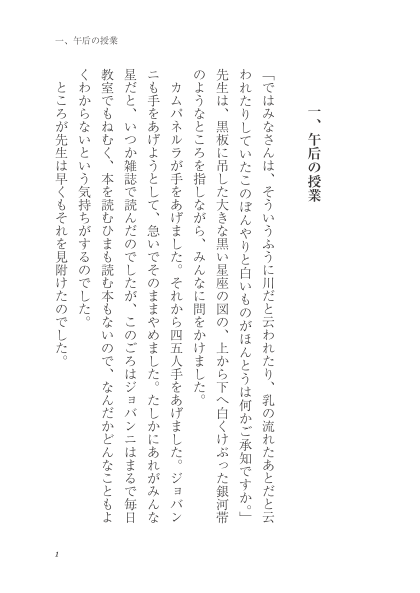 一、午后の授業
一、午后の授業
「ではみなさんは、そういうふうに川だと云われたり、乳の流れたあとだと云
われたりしていたこのぼんやりと白いものがほんとうは何かご承知ですか。」
先生は、黒板に吊した大きな黒い星座の図の、上から下へ白くけぶった銀河帯
のようなところを指しながら、みんなに問をかけました。
カムパネルラが手をあげました。それから四五人手をあげました。ジョバン
ニも手をあげようとして、急いでそのままやめました。たしかにあれがみんな
星だと、いつか雑誌で読んだのでしたが、このごろはジョバンニはまるで毎日
教室でもねむく、本を読むひまも読む本もないので、なんだかどんなこともよ
くわからないという気持ちがするのでした。
ところが先生は早くもそれを見附けたのでした。
1